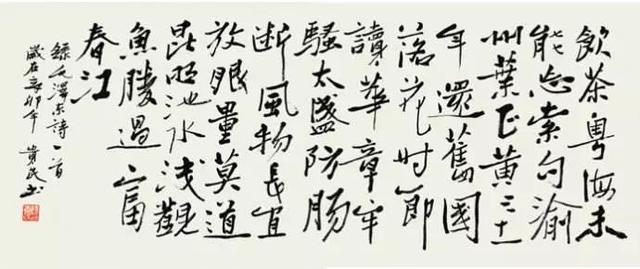 飲茶粵海未
能忘索句渝
州葉正黃三十一
年還舊國
落花時節
讀華章牢
騷太盛防腸
斷風物長宜
放眼量莫道
昆明池水淺觀
魚勝過富
春江
錄毛澤東詩一首
歲在辛卯年 貴民書